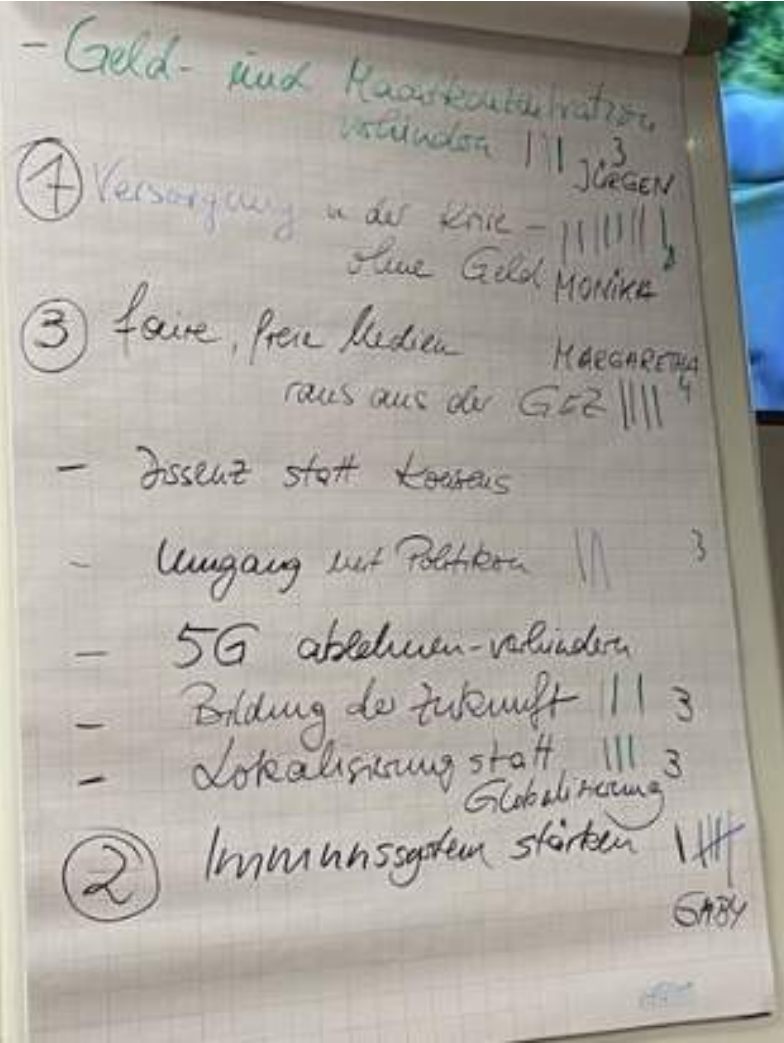 - Geld- und Machtkonzentration
verhindern ||| 3
JÜRGEN
① Versorgung in der Krise - |||||||| 8
ohne Geld MONIKA
③ faire, freie Medien MARGARETHA
raus aus der GEZ |||| 4
- Dissenz statt Konsens
- Umgang mit Politikern ||| 3
- 5G ablehnen-verhindern
- Bildung der Zukunft ||| 3
- Lokalisierung statt ||| 3
Globalisierung
② Immunssystem stärken
GABY